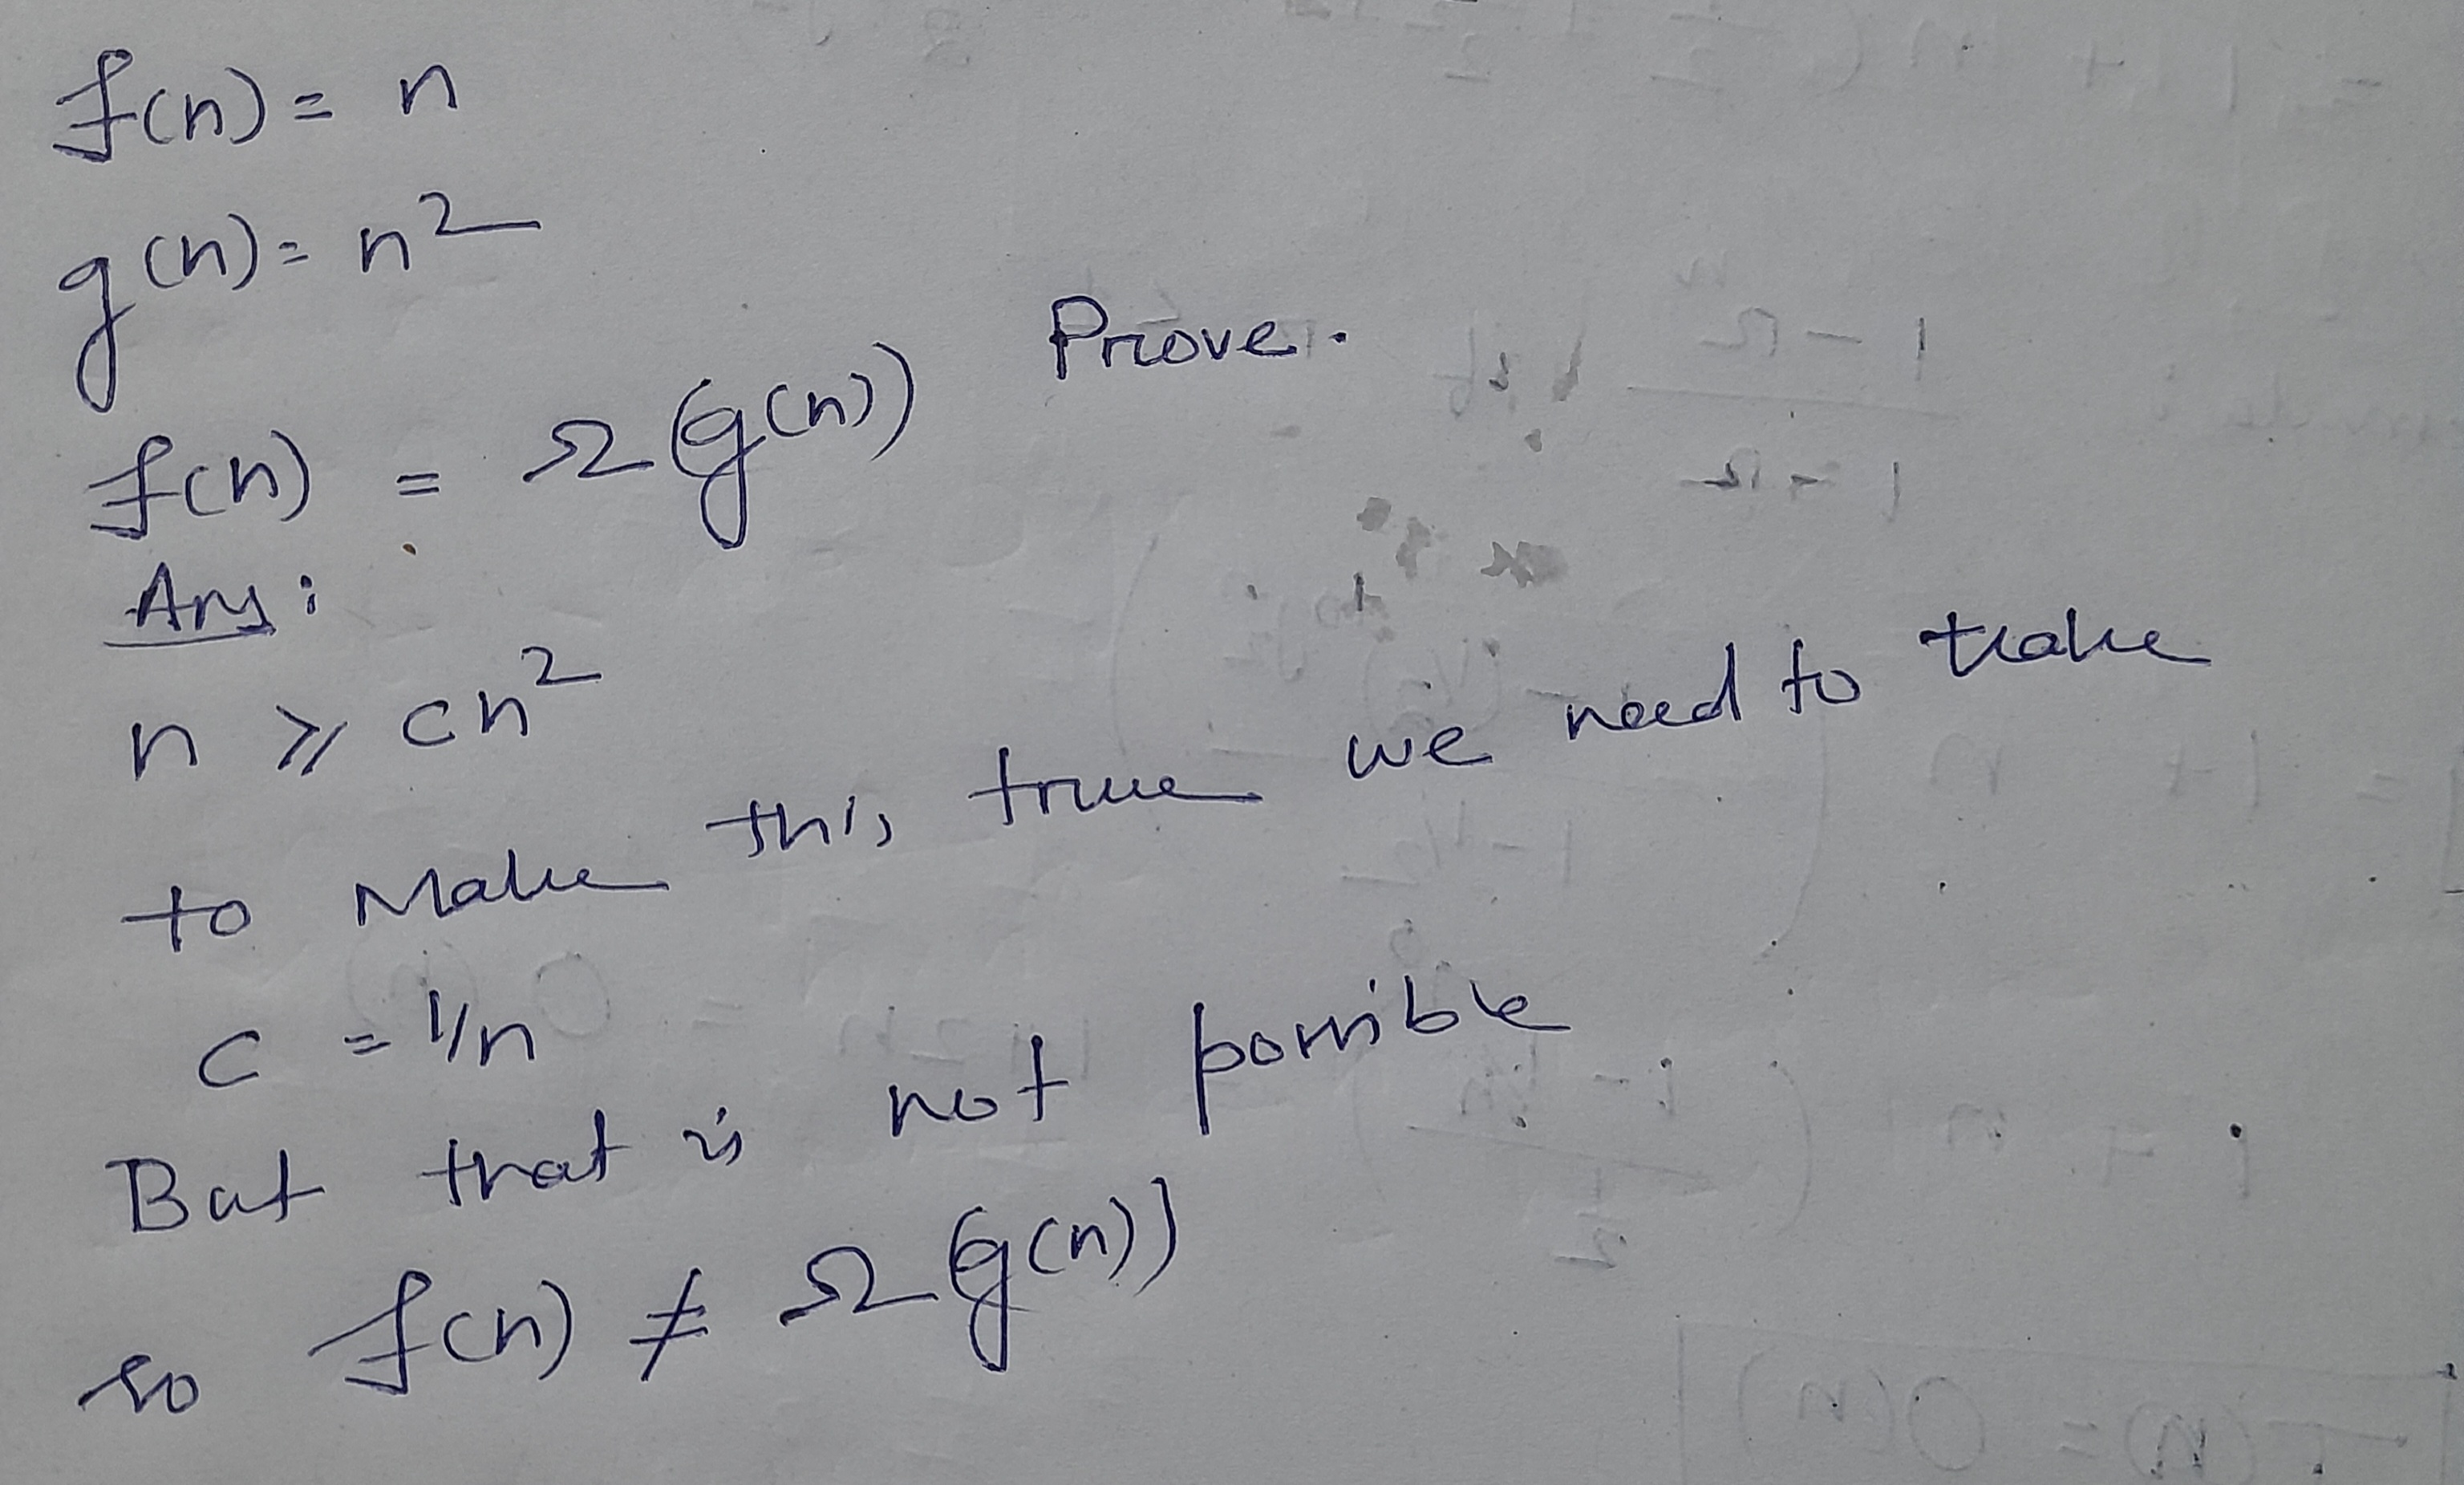 f(n) = n
g(n) = n²
f(n) = Ω(g(n)) Prove.
Ans:
n ⩾ cn²
to Make this true we need to take
c = 1/n
But that is not possible
so f(n) ≠ Ω(g(n))